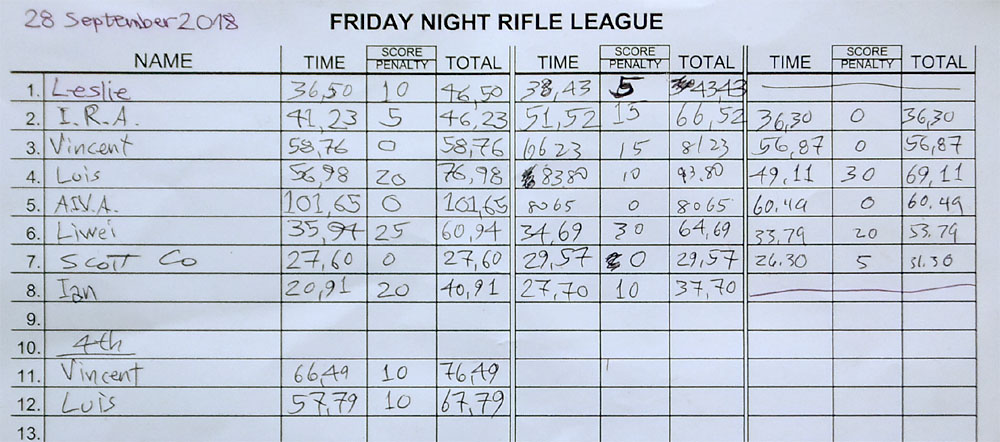 28 September 2018 FRIDAY NIGHT RIFLE LEAGUE
NAME TIME SCORE PENALTY TOTAL TIME SCORE PENALTY TOTAL TIME SCORE PENALTY TOTAL
1. Leslie 36,50 10 46,50 38,43 5 43,43
2. I.R.A. 41,23 5 46,23 51,52 15 66,52 36,30 0 36,30
3. Vincent 58,76 0 58,76 66 23 15 81 23 56,87 0 56,87
4. Luis 56,98 20 76,98 83.80 10 93.80 49,11 30 69,11
5. 101,65 0 101,65 80 65 0 80 65 60.49 0 60.49
6. Liwei 35,94 25 60,94 34,69 30 64,69 33,79 20 53.79
7. Scott Co 27,60 0 27,60 29,57 0 29,57 26.30 5 31.30
8. Ian 20,91 20 40,91 27,70 10 37,70
9.
10. 4th
11. Vincent 66,49 10 76,49
12. Luis 57,79 10 67,79
13.